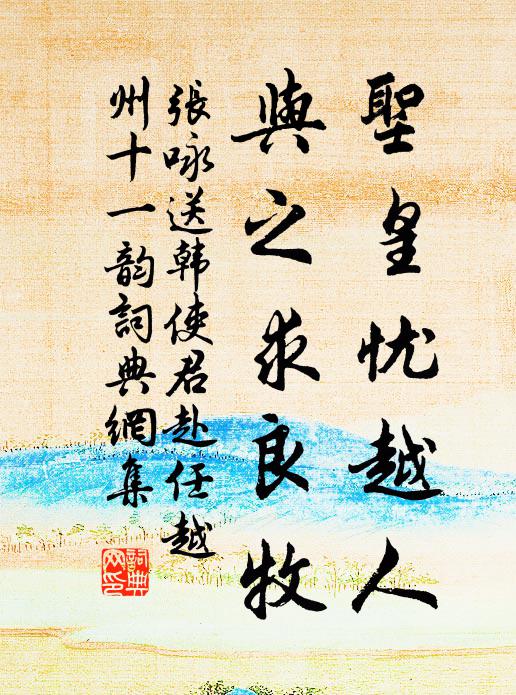 聖皇忧越人
與之求良牧
張咏送韩使君赴任越
州十一韵詞典網集
詞典網印